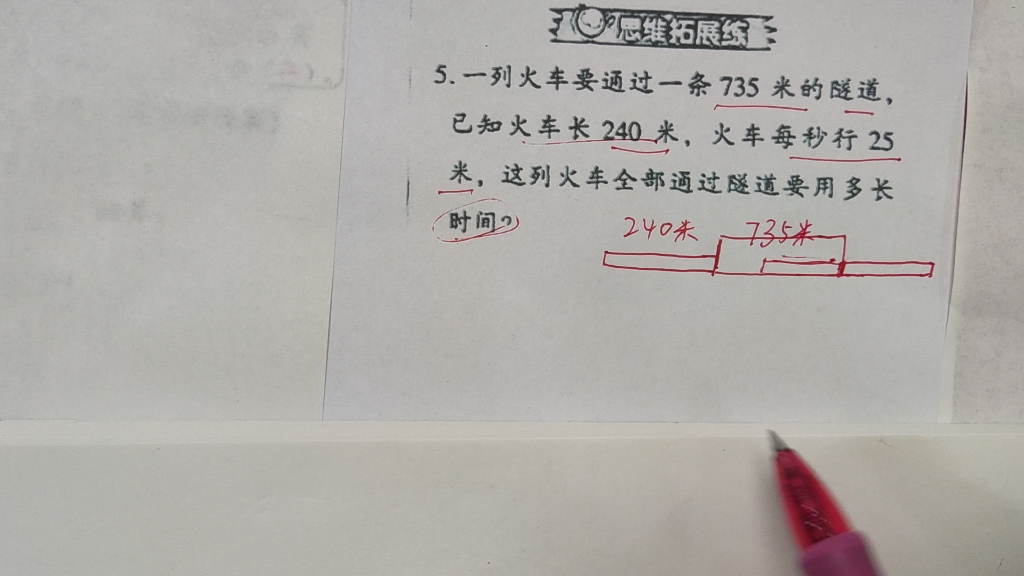 思维拓展练
5.一列火车要通过一条 735 米的隧道,
已知火车长 240 米, 火车每秒行 25
米, 这列火车全部通过隧道要用多长
时间?
240米 735米